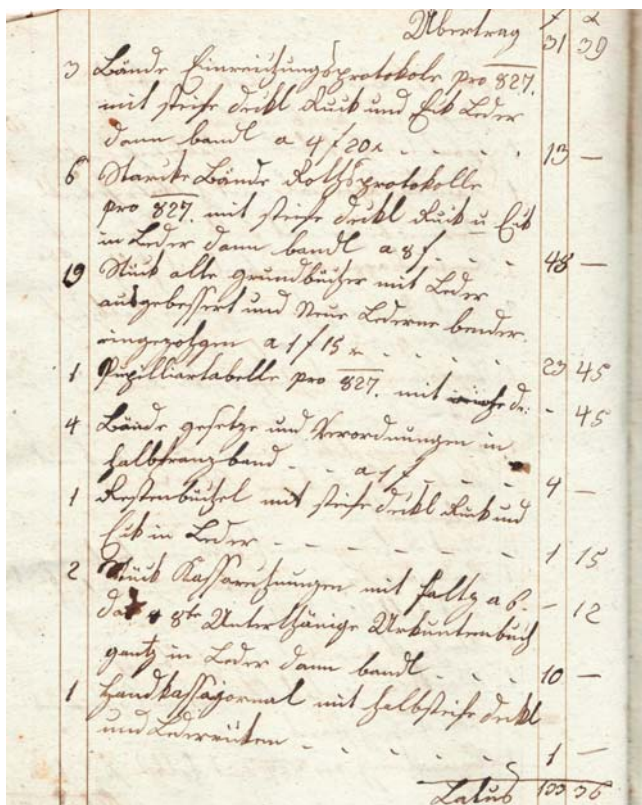 Übertrag f x
31 39
3 Bände Einreichungsprotokole pro 827.
mit steife Deckl Ruck und Eck Leder
dann bandl a 4 f 20 x - - - - 13 —
6 Starcke Bände Rathsprotokolle
pro 827. mit steife Deckl Ruck u Eck
in Leder dann bandl a 8 f. - - - 48 —
19 Stück alte Grundbücher mit Leder
ausgebessert und Neue Lederne bender
eingezohgen a 1 f 15 x - - - - - 23 45
1 Pupilliartabelle pro 827. mit De: - 45
4 Bände gesetze und Verordnungen in
halbfranzband - - a 1 f - - - 4 —
1 Restenbüchel mit steife Deckl Ruck und
Eck in Leder - - - - - - - 1 15
2 Stück Kassarechnungen mit Faltz a 6. - 12
8te Unterthänige Urkuntenbuch
gantz in Leder dann bandl - - - - 10 —
1 Handkassajornal mit halbsteife Deckl
und Lederrücken - - - - - - 1 —
Latus 133 36